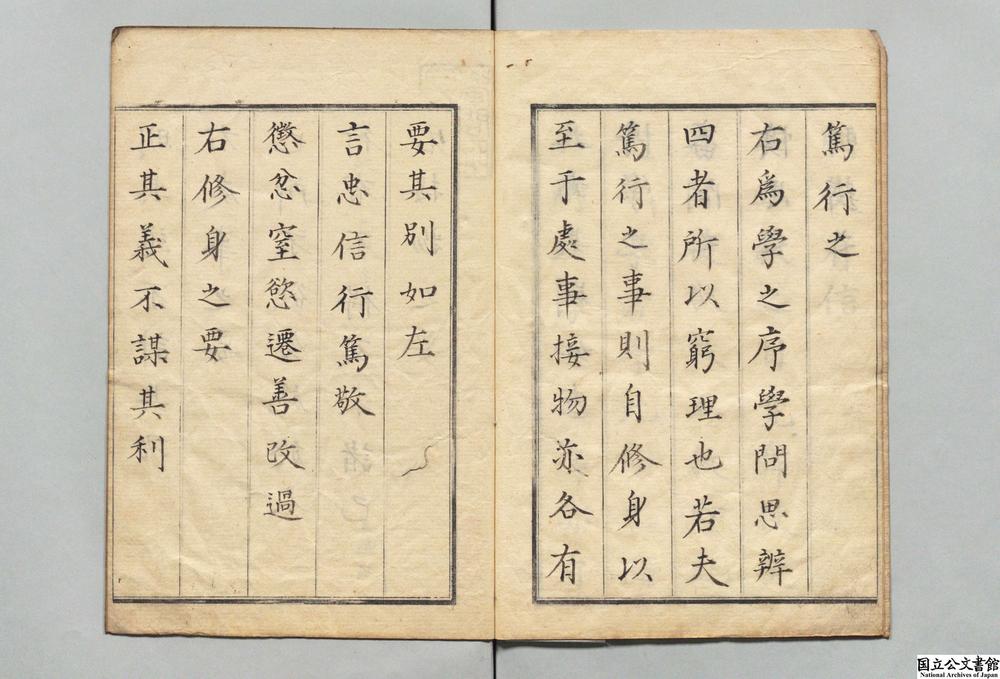 篤行之
右爲學之序學問思辨
四者所以窮理也若夫
篤行之事則自修身以
至于處事接物亦各有
要其別如左
言忠信行篤敬
懲忿窒慾遷善改過
右修身之要
正其義不謀其利
国立公文書館
National Archives of Japan